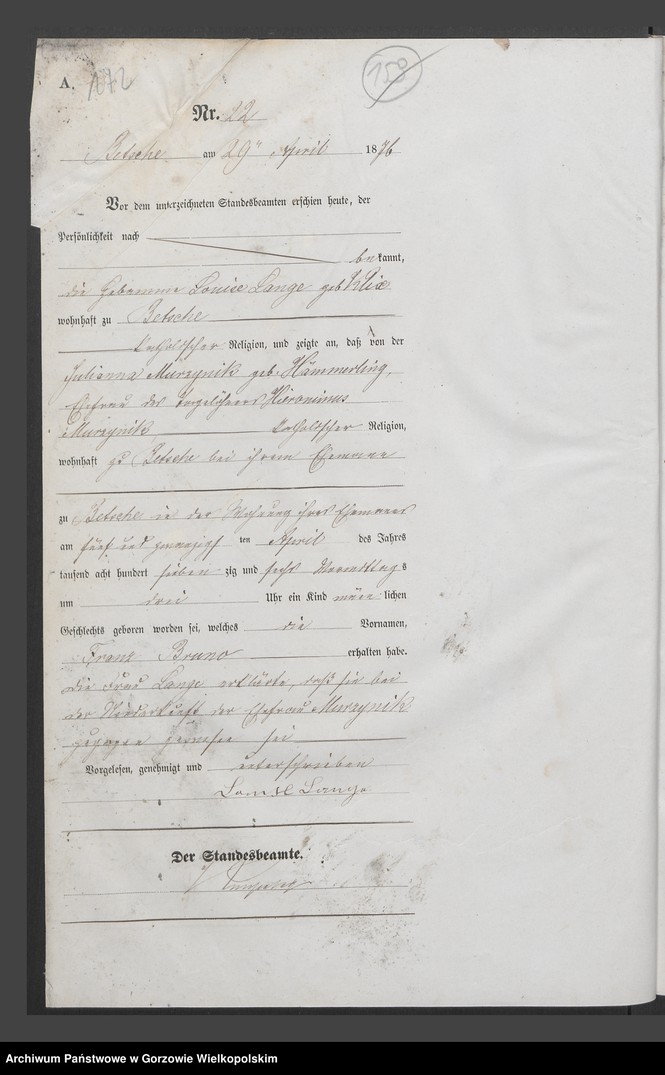 A.
158
Nr. 22
Betsche am 29ⁿ April 1876
Vor dem unterzeichneten Standesbeamten erschien heute, der
Persönlichkeit nach
bekannt,
die Hebamme Louise Lange geb Klix
wohnhaft zu Betsche
katholischer Religion, und zeigte an, daß von der
Julianna Murzynik geb. Hämmerling,
Ehefrau des Tagelöhners Hieronimus
Murzynik katholischer Religion,
wohnhaft zu Betsche bei ihrem Ehemann
zu Betsche in der Wohnung ihres Ehemannes
am fünf und zwanzigsten April des Jahres
tausend acht hundert siebenzig und sechs Vormittags
um drei Uhr ein Kind männlichen
Geschlechts geboren worden sei, welches die Vornamen,
Franz Bruno erhalten habe.
Die Frau Lange erklärte, daß sie bei
der Niederkunft der Ehefrau Murzynik
zugegen gewesen sei
Vorgelesen, genehmigt und unterschrieben
Louise Lange
Der Standesbeamte.
Archiwum Państwowe w Gorzowie Wielkopolskim